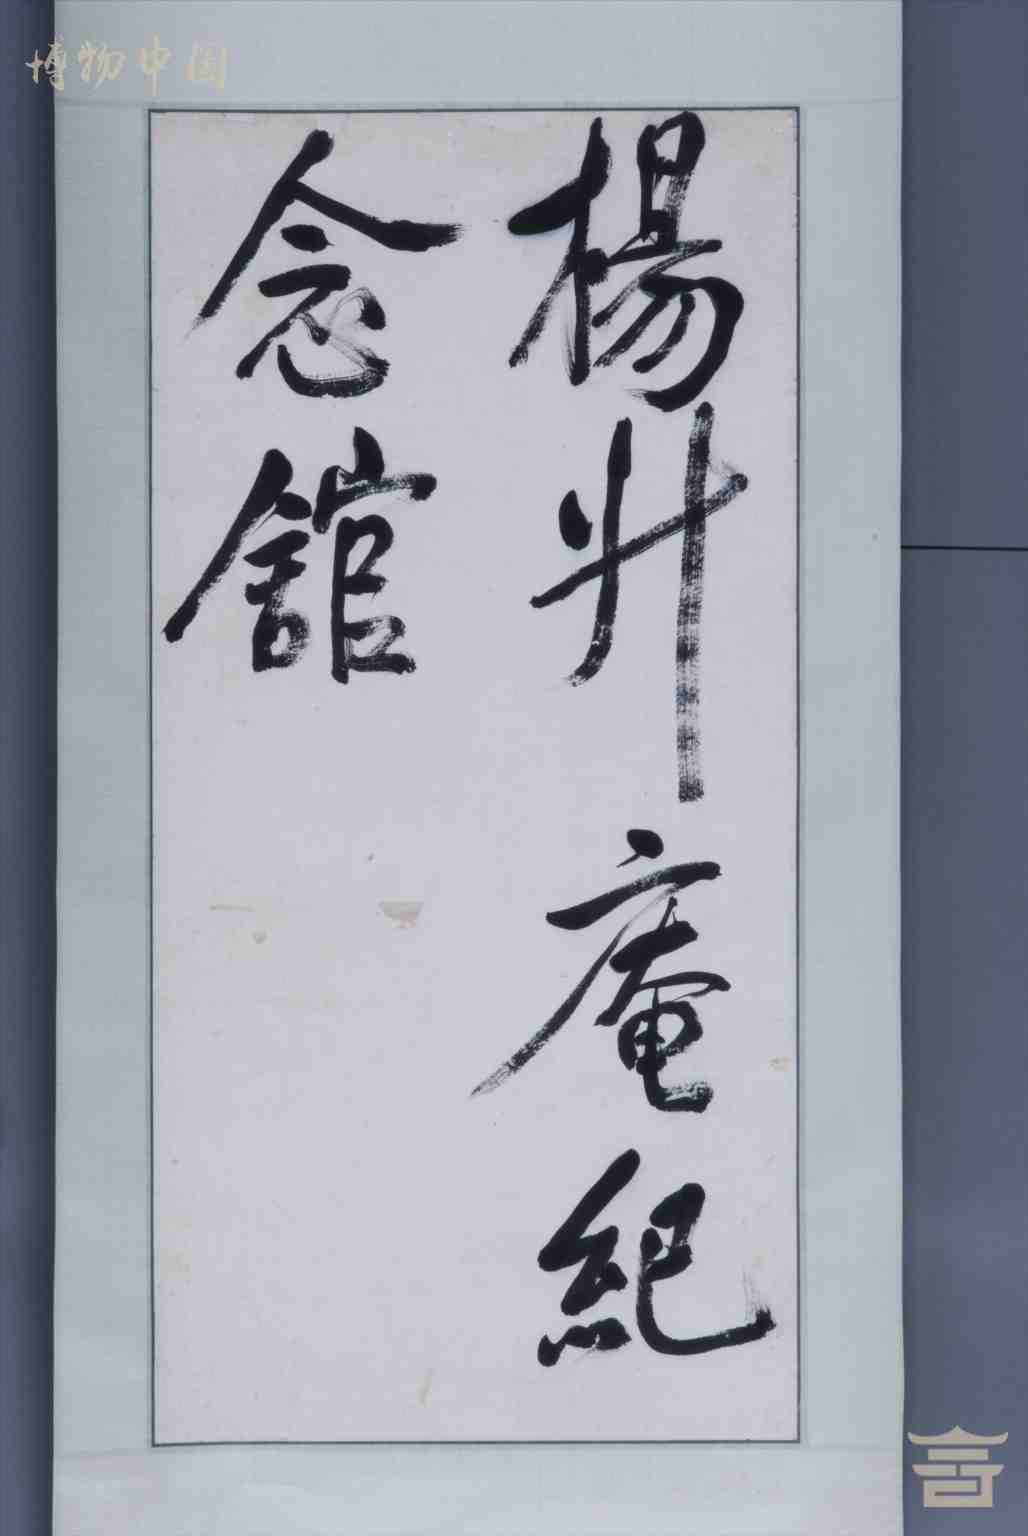 博物中国
楊升庵紀
念館